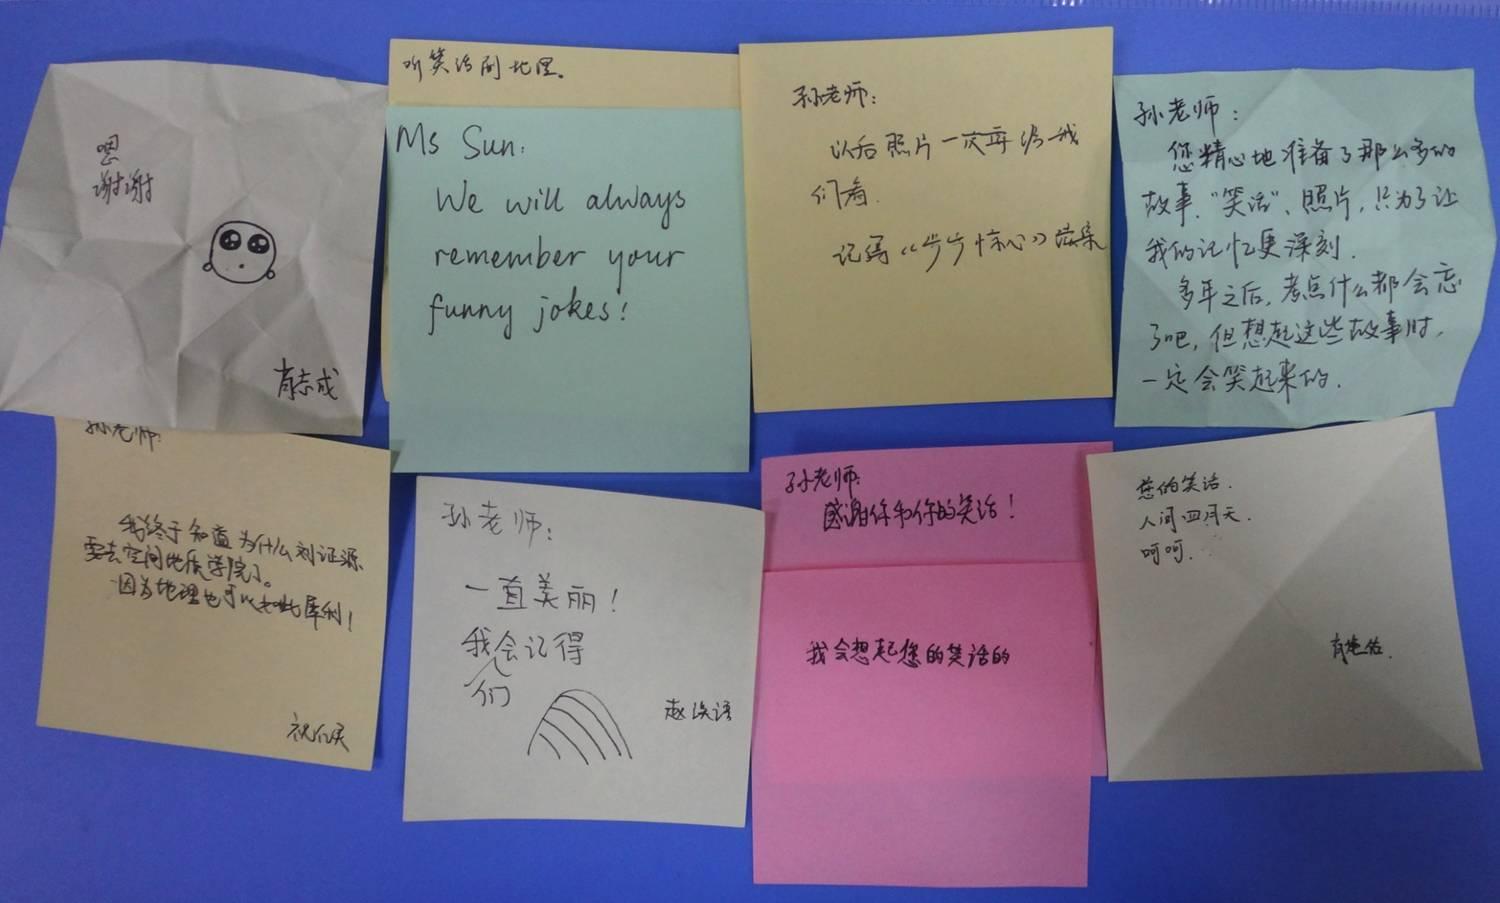 嗯
谢谢
肖志成
听笑话闹地理。
Ms Sun:
We will always
remember your
funny jokes!
孙老师:
以后照片一次再给我
们看.
记得《步步惊心》结果
孙老师:
您精心地准备了那么多的
故事、“笑话”、照片，只为了让
我的记忆更深刻.
多年之后，考点什么都会忘
了吧，但想起这些故事时，
一定会笑起来的.
孙老师:
我终于知道为什么刘证源
要去空间地质学院了。
因为地理也可以如此犀利!
孙老师:
一直美丽!
我会记得
们
赵
语
孙老师:
感谢你和你的笑话!
我会想起您的笑话的
您的笑话.
人间四月天.
呵呵.